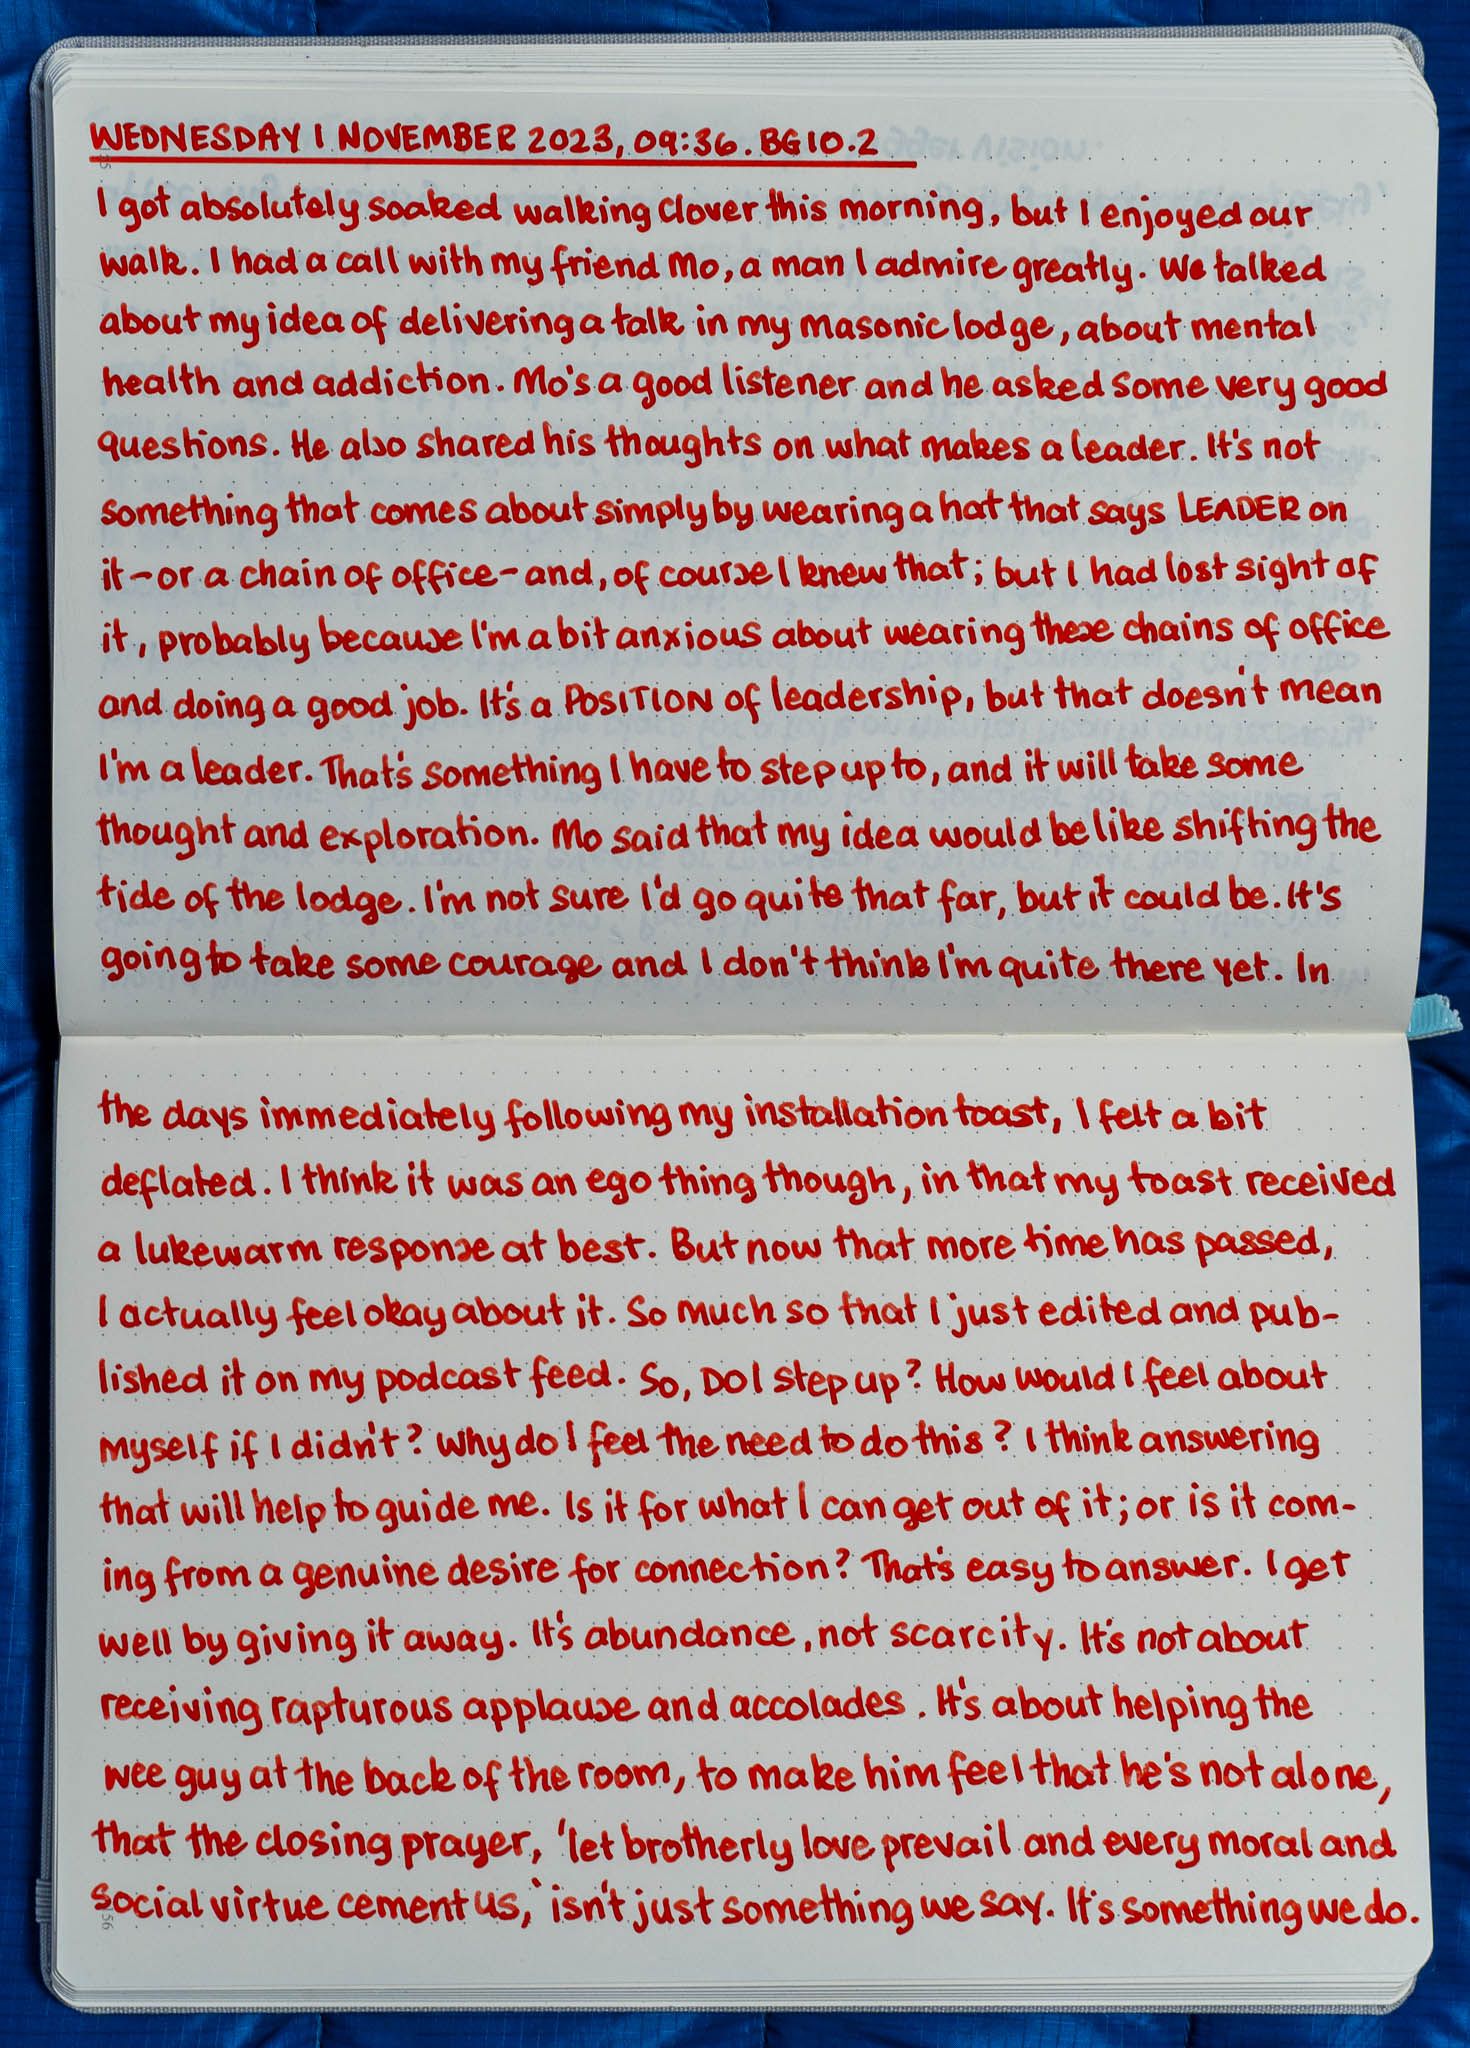 WEDNESDAY 1 NOVEMBER 2023, 09:36. BG 10.2
I got absolutely soaked walking Clover this morning, but I enjoyed our
walk. I had a call with my friend Mo, a man I admire greatly. We talked
about my idea of delivering a talk in my masonic lodge, about mental
health and addiction. Mo's a good listener and he asked some very good
questions. He also shared his thoughts on what makes a leader. It's not
something that comes about simply by wearing a hat that says LEADER on
it - or a chain of office - and, of course I knew that; but I had lost sight of
it, probably because I'm a bit anxious about wearing these chains of office
and doing a good job. It's a POSITION of leadership, but that doesn't mean
I'm a leader. That's something I have to step up to, and it will take some
thought and exploration. Mo said that my idea would be like shifting the
tide of the lodge. I'm not sure I'd go quite that far, but it could be. It's
going to take some courage and I don't think I'm quite there yet. In
the days immediately following my installation toast, I felt a bit
deflated. I think it was an ego thing though, in that my toast received
a lukewarm response at best. But now that more time has passed,
I actually feel okay about it. So much so that I just edited and pub-
lished it on my podcast feed. So, DO I step up? How would I feel about
myself if I didn't? Why do I feel the need to do this? I think answering
that will help to guide me. Is it for what I can get out of it; or is it com-
ing from a genuine desire for connection? That's easy to answer. I get
well by giving it away. It's abundance, not scarcity. It's not about
receiving rapturous applause and accolades. It's about helping the
wee guy at the back of the room, to make him feel that he's not alone,
that the closing prayer, 'let brotherly love prevail and every moral and
social virtue cement us,' isn't just something we say. It's something we do.
56